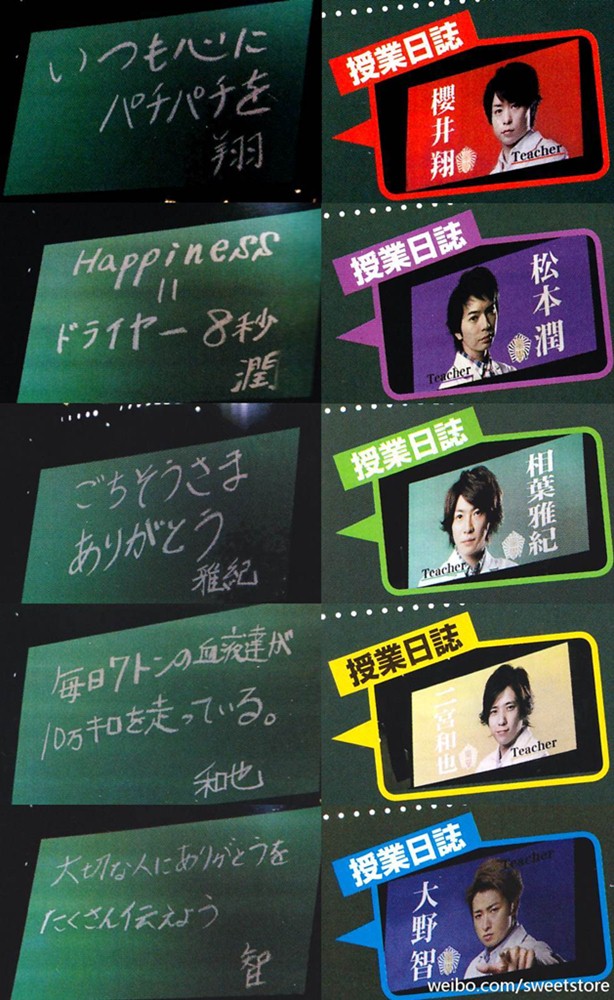 いつも心に
パチパチを
翔
授業日誌
櫻井翔
Teacher
Happiness
=
ドライヤー8秒
潤
授業日誌
松本潤
Teacher
ごちそうさま
ありがとう
雅紀
授業日誌
相葉雅紀
Teacher
毎日7トンの血液達が
10万キロを走っている。
和也
授業日誌
二宮和也
Teacher
大切な人にありがとうを
たくさん伝えよう
智
授業日誌
Teacher
大野智
weibo.com/sweetstore